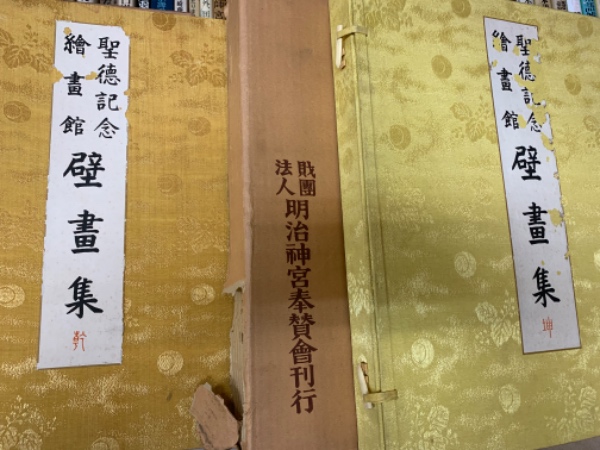 聖德記念
繪畫館
壁畫集
乾
財團
法人
明治神宮奉贊會刊行
聖德記念
繪畫館
壁畫集
坤